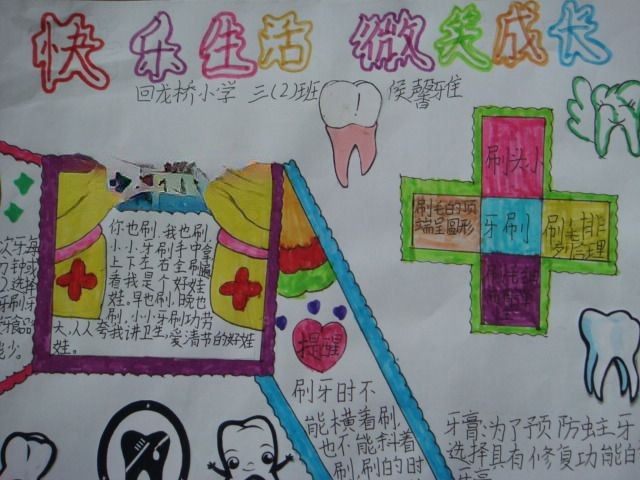 快乐生活 微笑成长
回龙桥小学 三(2)班 侯馨雅
你也刷，我也刷
小小牙刷手中拿
上下左右全刷遍
看我是个好娃
娃。早也刷，晚也
刷，小小牙刷功劳
大，人人夸我讲卫生，爱清节的好娃
娃。
次牙每
刀种或
2选择
牙刷牙
能少。
刷头小
刷毛的顶
端呈圆形
牙刷
刷毛排
列合理
提醒
刷牙时不
能横着刷
也不能斜着
刷，刷的时
牙膏：为了预防蛀牙
选择具有修复功能的
牙膏